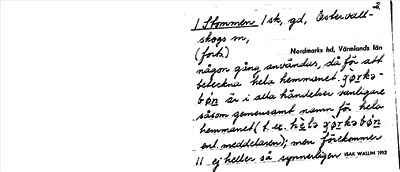 1 Stommen / sk, gd, Östervall- 2
skogs sn,
(forts) Nordmarks hd, Värmlands län
någon gång användas, då för att
beteckna hela hemmanet. ʒørkə-
bøn är i alla händelser vanligare
såsom gemensamt namn för hela
hemmanet (t. ex. hèlə ʒørkəbøn
enl. meddelaren); men förekommer
11 ej heller så synnerligen ISAK WALLIN 1912